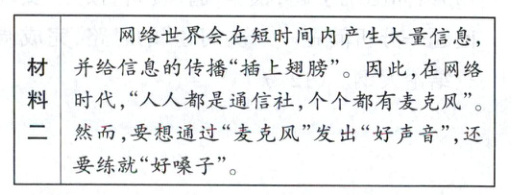 材料二
网络世界会在短时间内产生大量信息，
并给信息的传播“插上翅膀”。因此，在网络
时代，“人人都是通信社，个个都有麦克风”。
然而，要想通过“麦克风”发出“好声音”，还
要练就“好嗓子”。